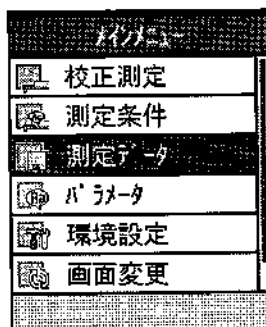 メインメニュー
校正測定
測定条件
測定データ
パラメータ
環境設定
画面変更